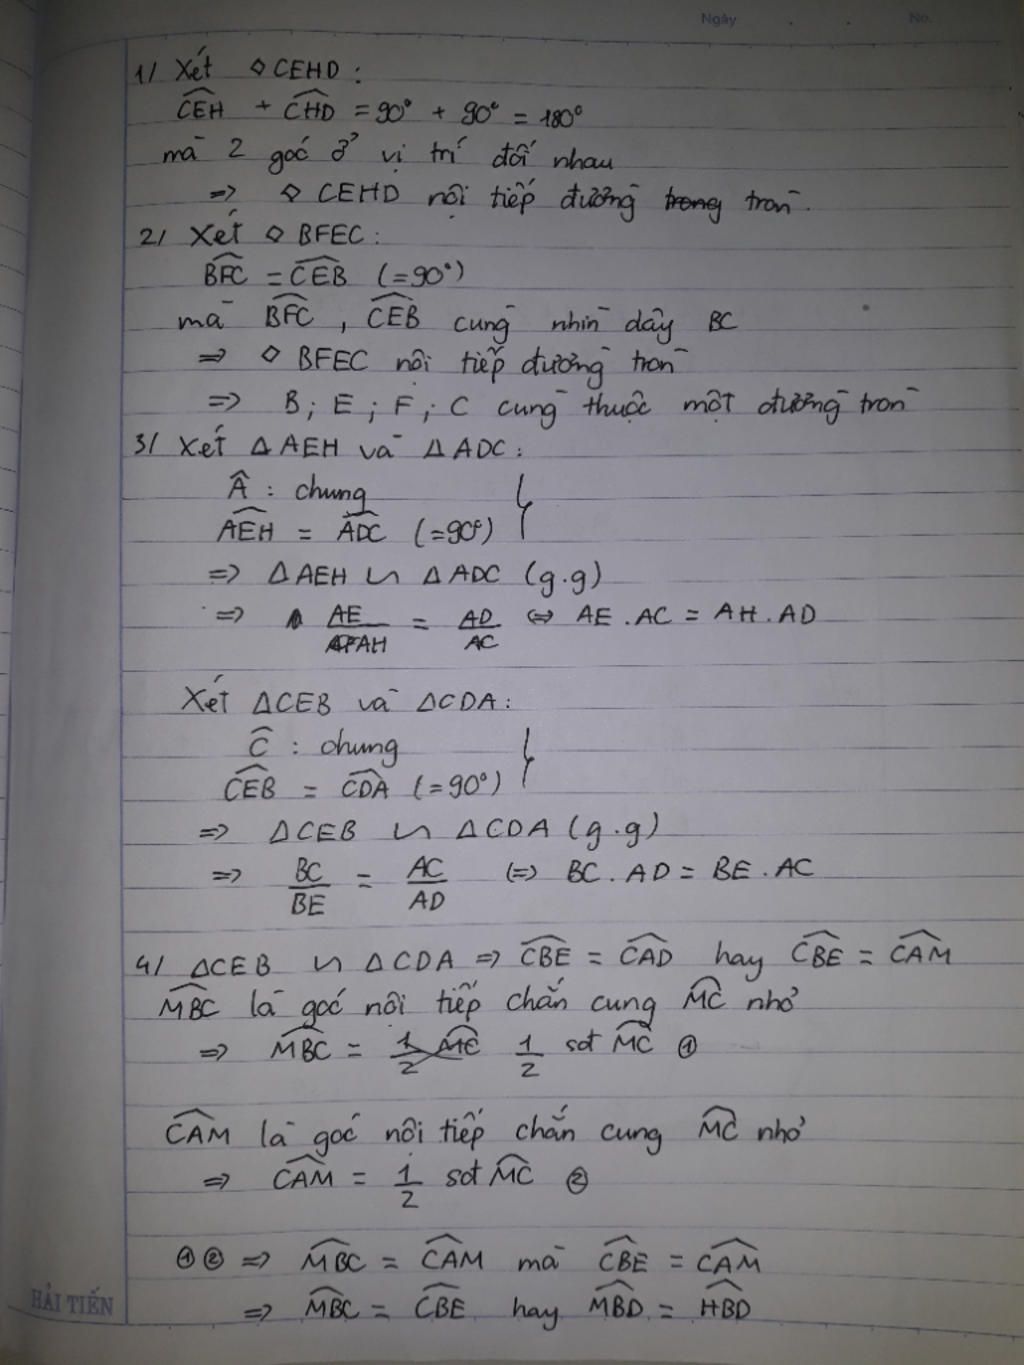 Ngày . . No.
1/ Xét ◇ CEHD :
CEH + CHD = 90° + 90° = 180°
mà 2 góc ở vị trí đối nhau
=> ◇ CEHD nội tiếp đường trong tròn.
2/ Xét ◇ BFEC :
BFC = CEB (=90°)
mà BFC , CEB cùng nhìn dây BC
=> ◇ BFEC nội tiếp đường tròn
=> B ; E ; F ; C cùng thuộc một đường tròn
3/ Xét Δ AEH và Δ ADC :
Â : chung
AEH = ADC (=90°)
=> Δ AEH ∽ Δ ADC (g.g)
=> AE/AH = AD/AC <=> AE . AC = AH . AD
Xét ΔCEB và ΔCDA :
Ĉ : chung
CEB = CDA (=90°)
=> ΔCEB ∽ ΔCDA (g.g)
=> BC/BE = AC/AD <=> BC . AD = BE . AC
4/ ΔCEB ∽ ΔCDA => CBE = CAD hay CBE = CAM
MBC là góc nội tiếp chắn cung MC nhỏ
=> MBC = 1/2 MC 1/2 sđ MC ①
CAM là góc nội tiếp chắn cung MC nhỏ
=> CAM = 1/2 sđ MC ②
① ② => MBC = CAM mà CBE = CAM
=> MBC = CBE hay MBD = HBD
HẢI TIẾN